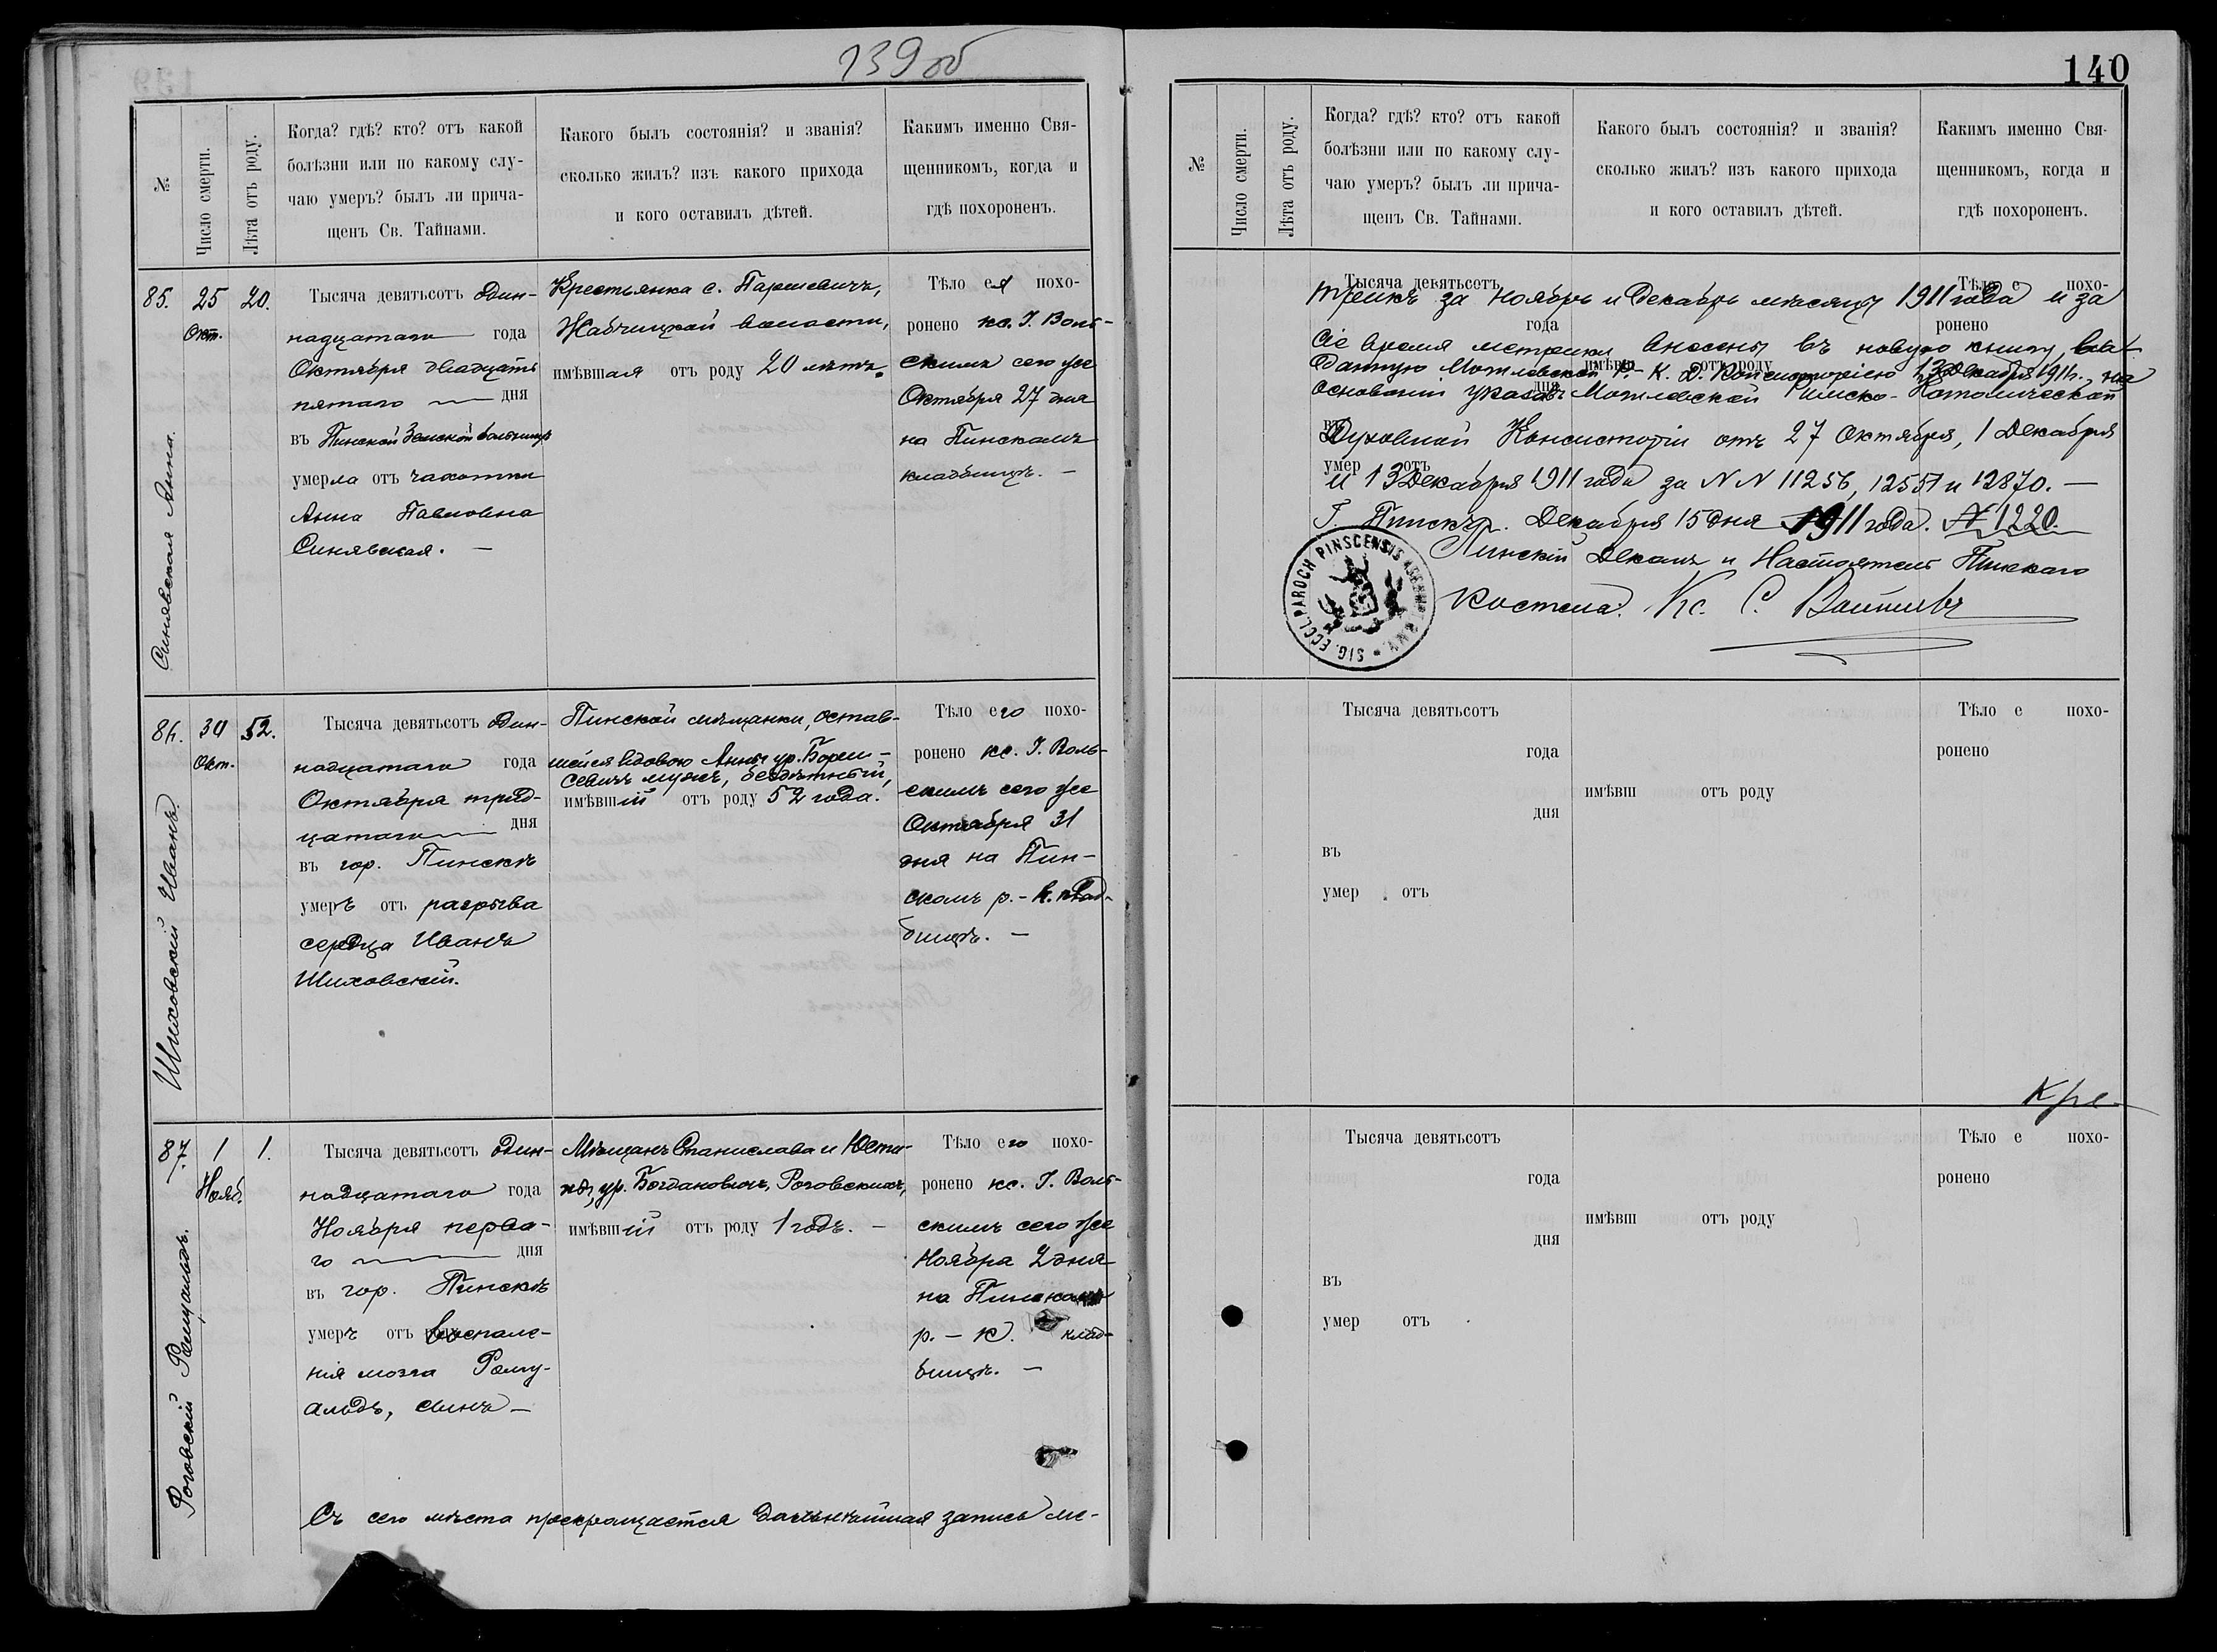 139 об
№
Число смерти.
Лѣта отъ роду.
Когда? гдѣ? кто? отъ какой
болѣзни или по какому слу-
чаю умеръ? былъ ли прича-
щенъ Св. Тайнами.
Какого былъ состоянія? и званія?
сколько жилъ? изъ какого прихода
и кого оставилъ дѣтей.
Какимъ именно Свя-
щенникомъ, когда и
гдѣ похороненъ.
85.
Синявская Анна.
25
Окт.
20.
Тысяча девятьсотъ один-
надцатаго года
Октября двадцать
пятаго дня
въ Пинской Земской больницѣ
умерла отъ чахотки
Анна Павловна
Синявская. —
Крестьянка с. Паршевичъ,
Жабчицкой волости,
имѣвшая отъ роду 20 лѣтъ.
Тѣло ея похо-
ронено кс. І. Воль-
скимъ сего же
Октября 27 дня
на Пинскомъ
кладбищѣ. —
86.
Шиховскій Иванъ
30
Окт.
52.
Тысяча девятьсотъ один-
надцатаго года
Октября трид-
цатаго дня
въ гор. Пинскѣ
умеръ отъ разрыва
сердца Иванъ
Шиховскій.
Пинской мѣщанки, остав-
шейся вдовою Анны ур. Бори-
севичъ мужъ, бездѣтный,
имѣвшій отъ роду 52 года.
Тѣло его похо-
ронено кс. І. Воль-
скимъ сего же
Октября 31
дня на Пин-
скомъ р.-к. клад-
бищѣ. —
87.
Роговскій Ромуальдъ.
1
Нояб.
1.
Тысяча девятьсотъ один-
надцатаго года
Ноября перва-
го дня
въ гор. Пинскѣ
умеръ отъ воспале-
нія мозга Рому-
альдъ, сынъ —
Мѣщанъ Станислава и Юсти-
ны, ур. Богдановичъ, Роговскихъ,
имѣвшій отъ роду 1 годъ. —
Тѣло его похо-
ронено кс. І. Воль-
скимъ сего же
Ноября 2 дня
на Пинскомъ
р.-к. клад-
бищѣ. —
Съ сего мѣста прекращается дальнѣйшая запись ме-
140
№
Число смерти.
Лѣта отъ роду.
Когда? гдѣ? кто? отъ какой
болѣзни или по какому слу-
чаю умеръ? былъ ли прича-
щенъ Св. Тайнами.
Какого былъ состоянія? и званія?
сколько жилъ? изъ какого прихода
и кого оставилъ дѣтей.
Какимъ именно Свя-
щенникомъ, когда и
гдѣ похороненъ.
Тысяча девятьсотъ
Тѣло е похо-
трикъ за Ноябрь и Декабрь мѣсяцы 1911 года и за
года
ронено
сіе время метрики внесены въ новую книгу, вы-
имѣвш отъ роду
данную Могилевской Р.-К. Д. Консисторіею 13 Декабря 1911 г., на
дня
основаніи указовъ Могилевской Римско-Католической
въ
Духовной Консисторіи отъ 27 Октября, 1 Декабря
умер отъ
и 13 Декабря 1911 года за NN 11256, 12551 и 12870. —
Г. Пинскъ. Декабря 15 дня 1911 года. N 1220.
Пинскій Деканъ и Настоятель Пинскаго
Костела. Кс. С.
SIG. ECCL. PAROCH PINSCENSIS
Тысяча девятьсотъ
года
дня
въ
умер отъ
имѣвш отъ роду
Тѣло е похо-
ронено
Тысяча девятьсотъ
года
дня
въ
умер отъ
имѣвш отъ роду
Тѣло е похо-
ронено